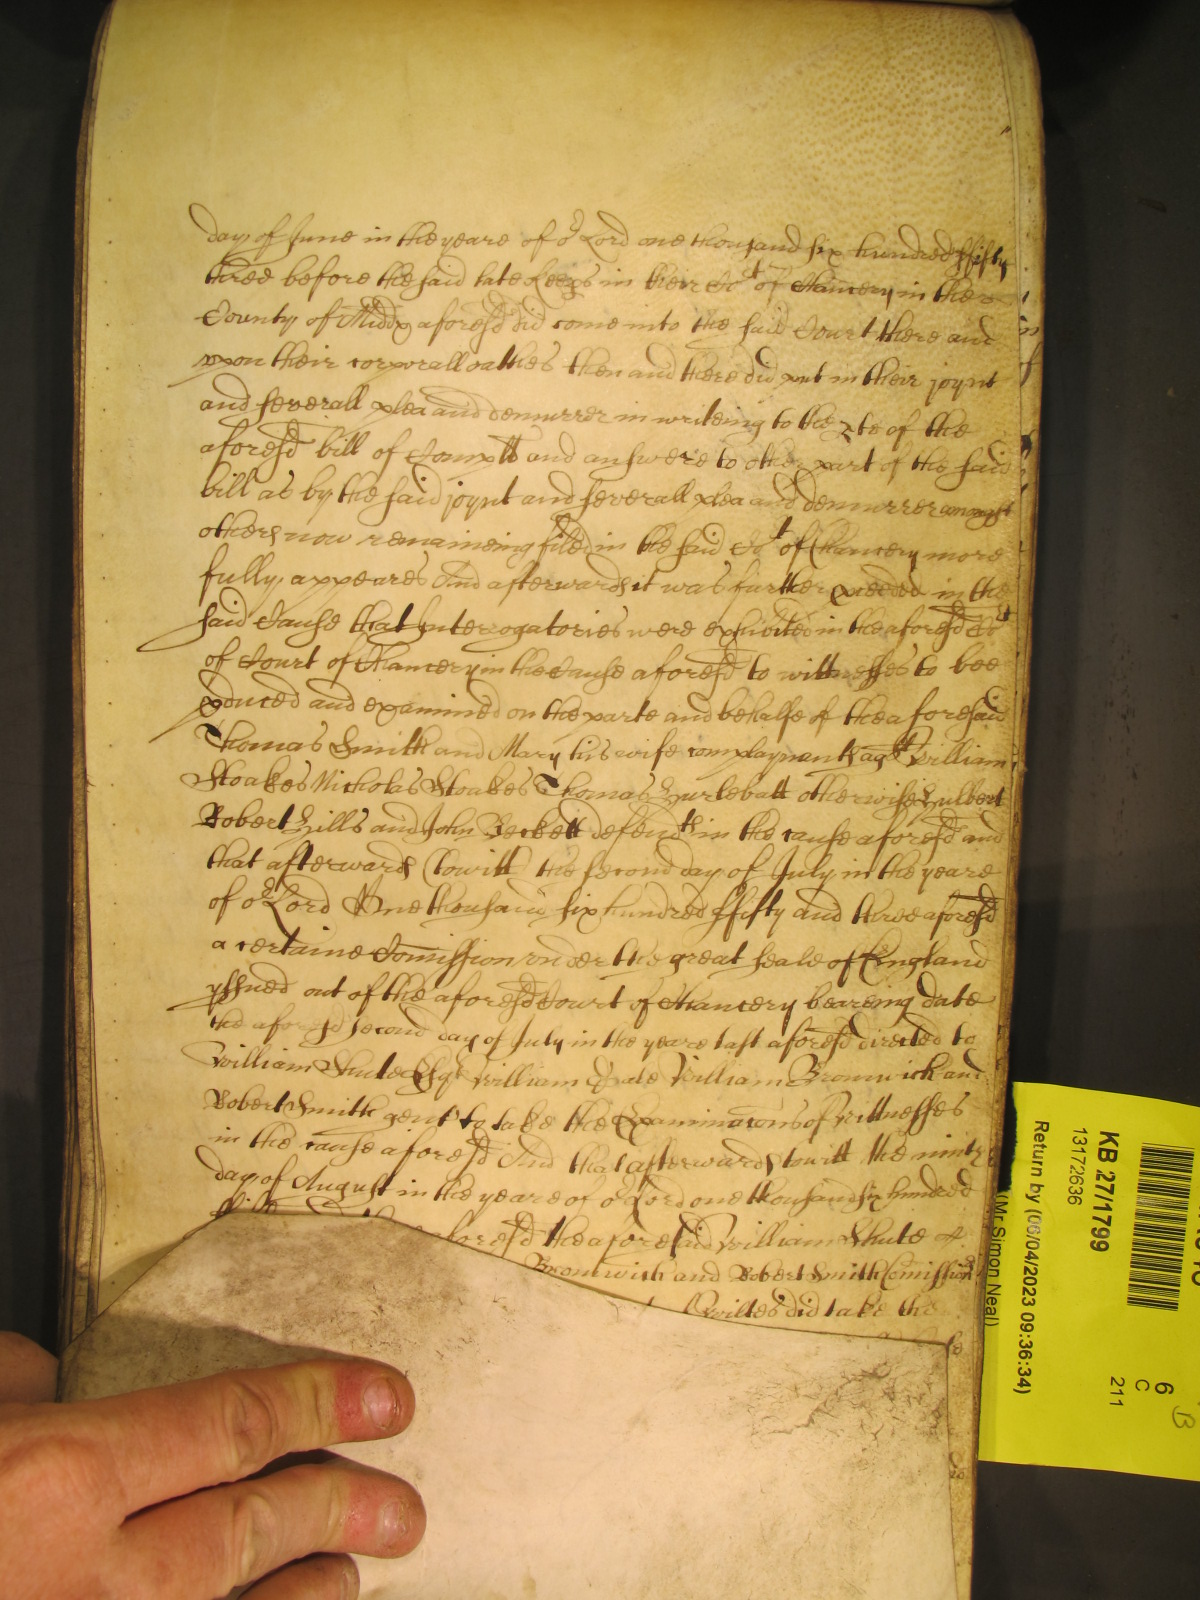 day of June in the yeare of or Lord one thousand six hundred ffifty
three before the said late Keeps in their Cort of Chancery in their
County of Middx aforesd did come into the said Court there and
upon their corporall oathes then and there did put in their joynt
and severall plea and demurrer in writeing to the pte of the
aforesd bill of Complt and answere to other part of the said
bill as by the said joynt and severall plea and demurrer amongst
others now remaineing filed in the said Cort of Chancery more
fully appeares And afterwards it was further pceeded in the
said Cause that Interrogatories were exhibited in the aforesd Cort
of Court of Chancery in the Cause aforesd to wittnesses to bee
pduced and examined on the parte and behalfe of the aforesaid
Thomas Smith and Mary his wife complaynants agt William
Stoakes Nicholas Stoakes Thomas Hurlebatt otherwise Hulbert
Robert Hills and John Beckett defendts in the cause aforesd and
that afterwards (towitt) the second day of July in the yeare
of or Lord One thousand six hundred ffifty and three aforesd
a certaine Comission under the great seale of England
yssued out of the aforesd Court of Chancery beareing date
the aforesd second day of July in the yeare last aforesd directed to
William Shute Esqr William Yate William Bromwich and
Robert Smith gent to take the Examinacons of Wittnesses
in the cause aforesd And that afterwards towitt the ninth
day of August in the yeare of or Lord one thousand six hundred
aforesd the aforesaid William Shute
Bromwich and Robert Smith Comission
did take the
KB 27/1799
13172636
Return by (06/04/2023 09:36:34)
(Mr Simon Neal)
6
C
211
B